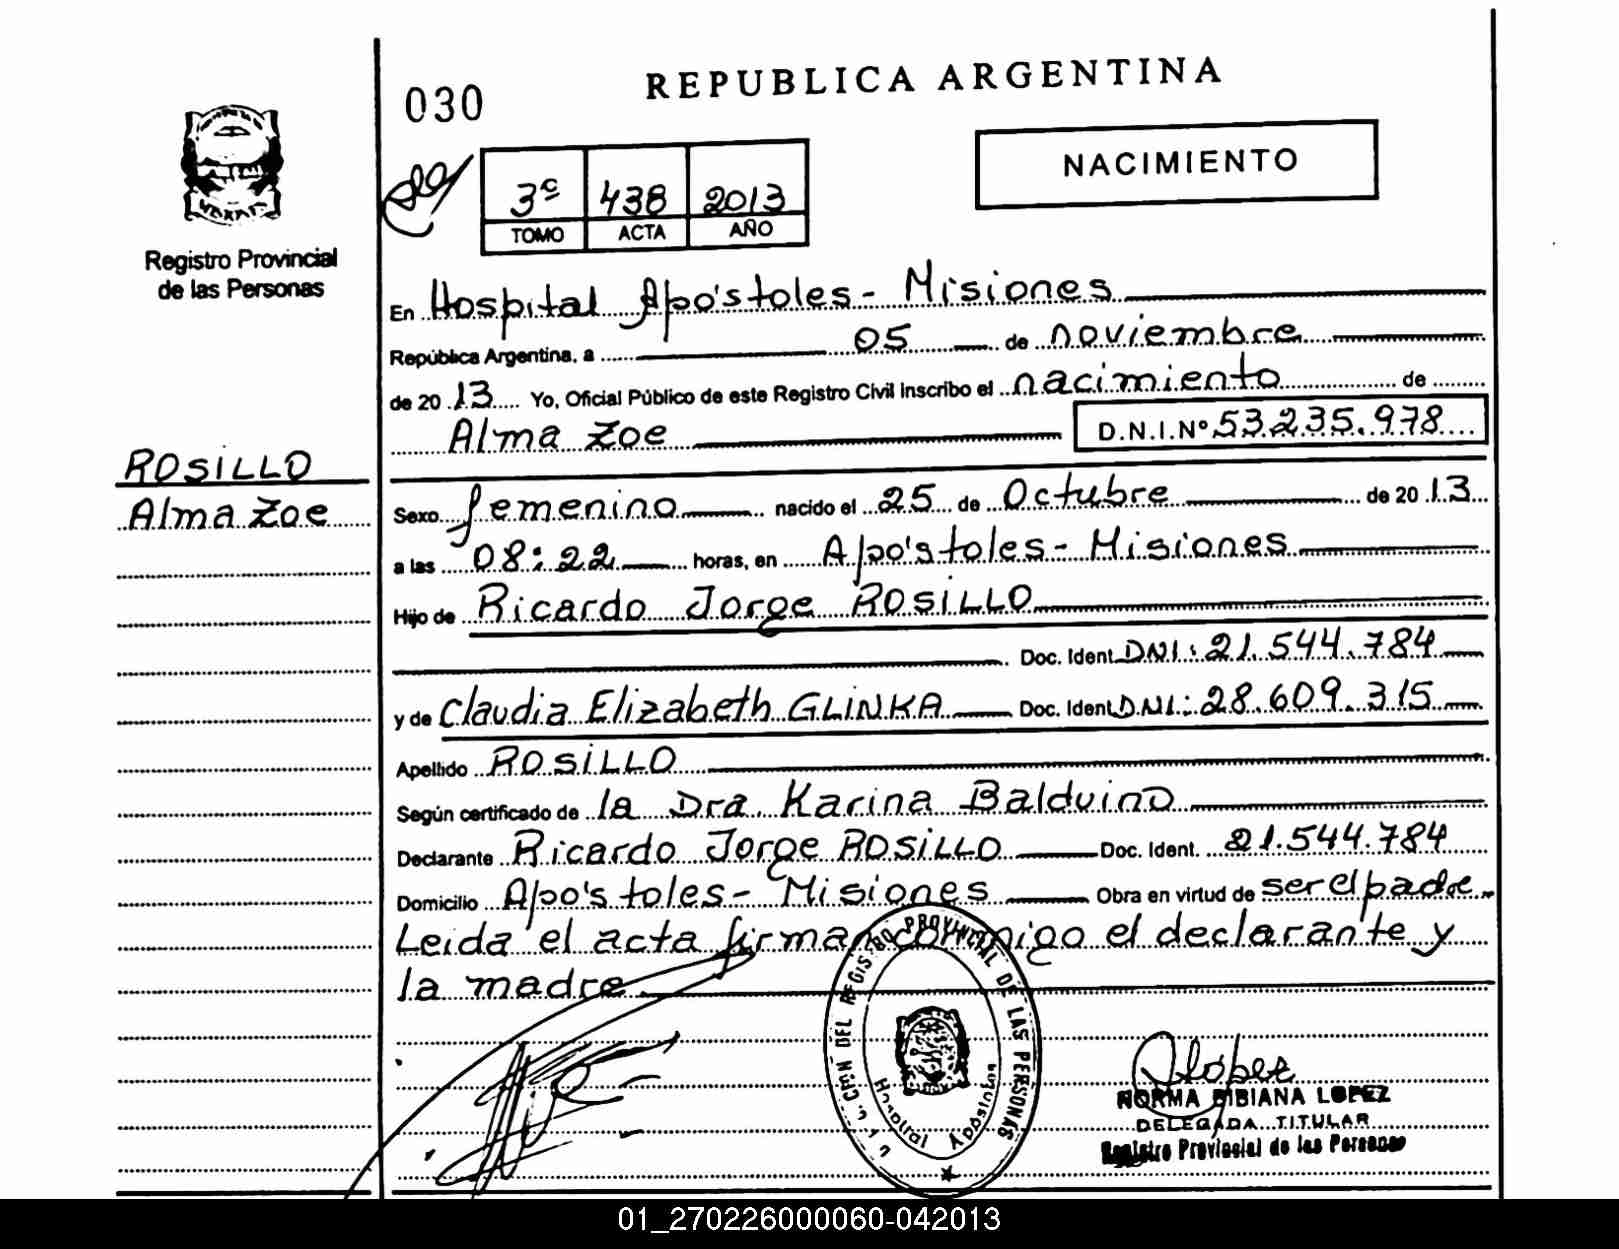 030
REPUBLICA ARGENTINA
NACIMIENTO
3º 438 2013
TOMO ACTA AÑO
Registro Provincial
de las Personas
En Hospital Apóstoles - Misiones
República Argentina, a 05 de noviembre
de 2013 Yo, Oficial Público de este Registro Civil Inscribo el nacimiento de
Alma Zoe D.N.I.Nº 53.235.978
ROSILLO
Alma Zoe
Sexo femenino nacido el 25 de Octubre de 2013
a las 08:22 horas, en Apóstoles - Misiones
Hijo de Ricardo Jorge ROSILLO
Doc. Ident. DNI: 21.544.784
y de Claudia Elizabeth GLINKA Doc. Ident. D.N.I.: 28.609.315
Apellido ROSILLO
Según certificado de la Dra. Karina Balduino
Declarante Ricardo Jorge ROSILLO Doc. Ident. 21.544.784
Domicilio Apóstoles - Misiones Obra en virtud de ser el padre
Leída el acta firman conmigo el declarante y
la madre.
DEL REGISTRO PROVINCIAL DE LAS PERSONAS
Hospital Apóstoles
NORMA BIBIANA LOPEZ
DELEGADA TITULAR
Registro Provincial de las Personas
01_270226000060-042013